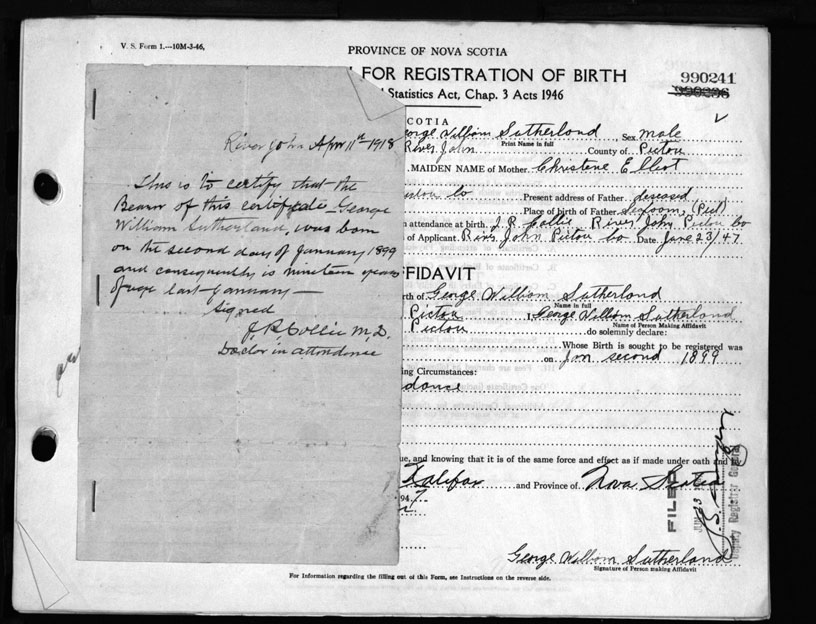 V. S. Form 1.—10M-3-46.
PROVINCE OF NOVA SCOTIA
FOR REGISTRATION OF BIRTH
990241
990236
Statistics Act, Chap. 3 Acts 1946
River John Apr 11th 1918
This is to certify that the
Bearer of this certificate George
William Sutherland, was born
on the second day of January 1899
and consequently is nineteen years
of age last January —
Signed
J. R. Collie M.D.
Doctor in attendance
SCOTIA
George William Sutherland Sex male
Print Name in full
River John County of Pictou
MAIDEN NAME of Mother. Christene Elliot
Pictou Co Present address of Father. deceased
Place of birth of Father
attendance at birth. J. R. Collie River John Pictou Co
of Applicant. River John Pictou Co Date. June 23/47
FFIDAVIT
rth of George William Sutherland
Name in full
Pictou I, George William Sutherland
Name of Person Making Affidavit
Pictou do solemnly declare:
Whose Birth is sought to be registered was
on Jan second 1899
ing Circumstances:
dance
ue, and knowing that it is of the same force and effect as if made under oath and
Halifax and Province of Nova Scotia
194 7
FILED
Deputy Registrar General
George William Sutherland
Signature of Person making Affidavit
For Information regarding the filling out of this Form, see Instructions on the reverse side.